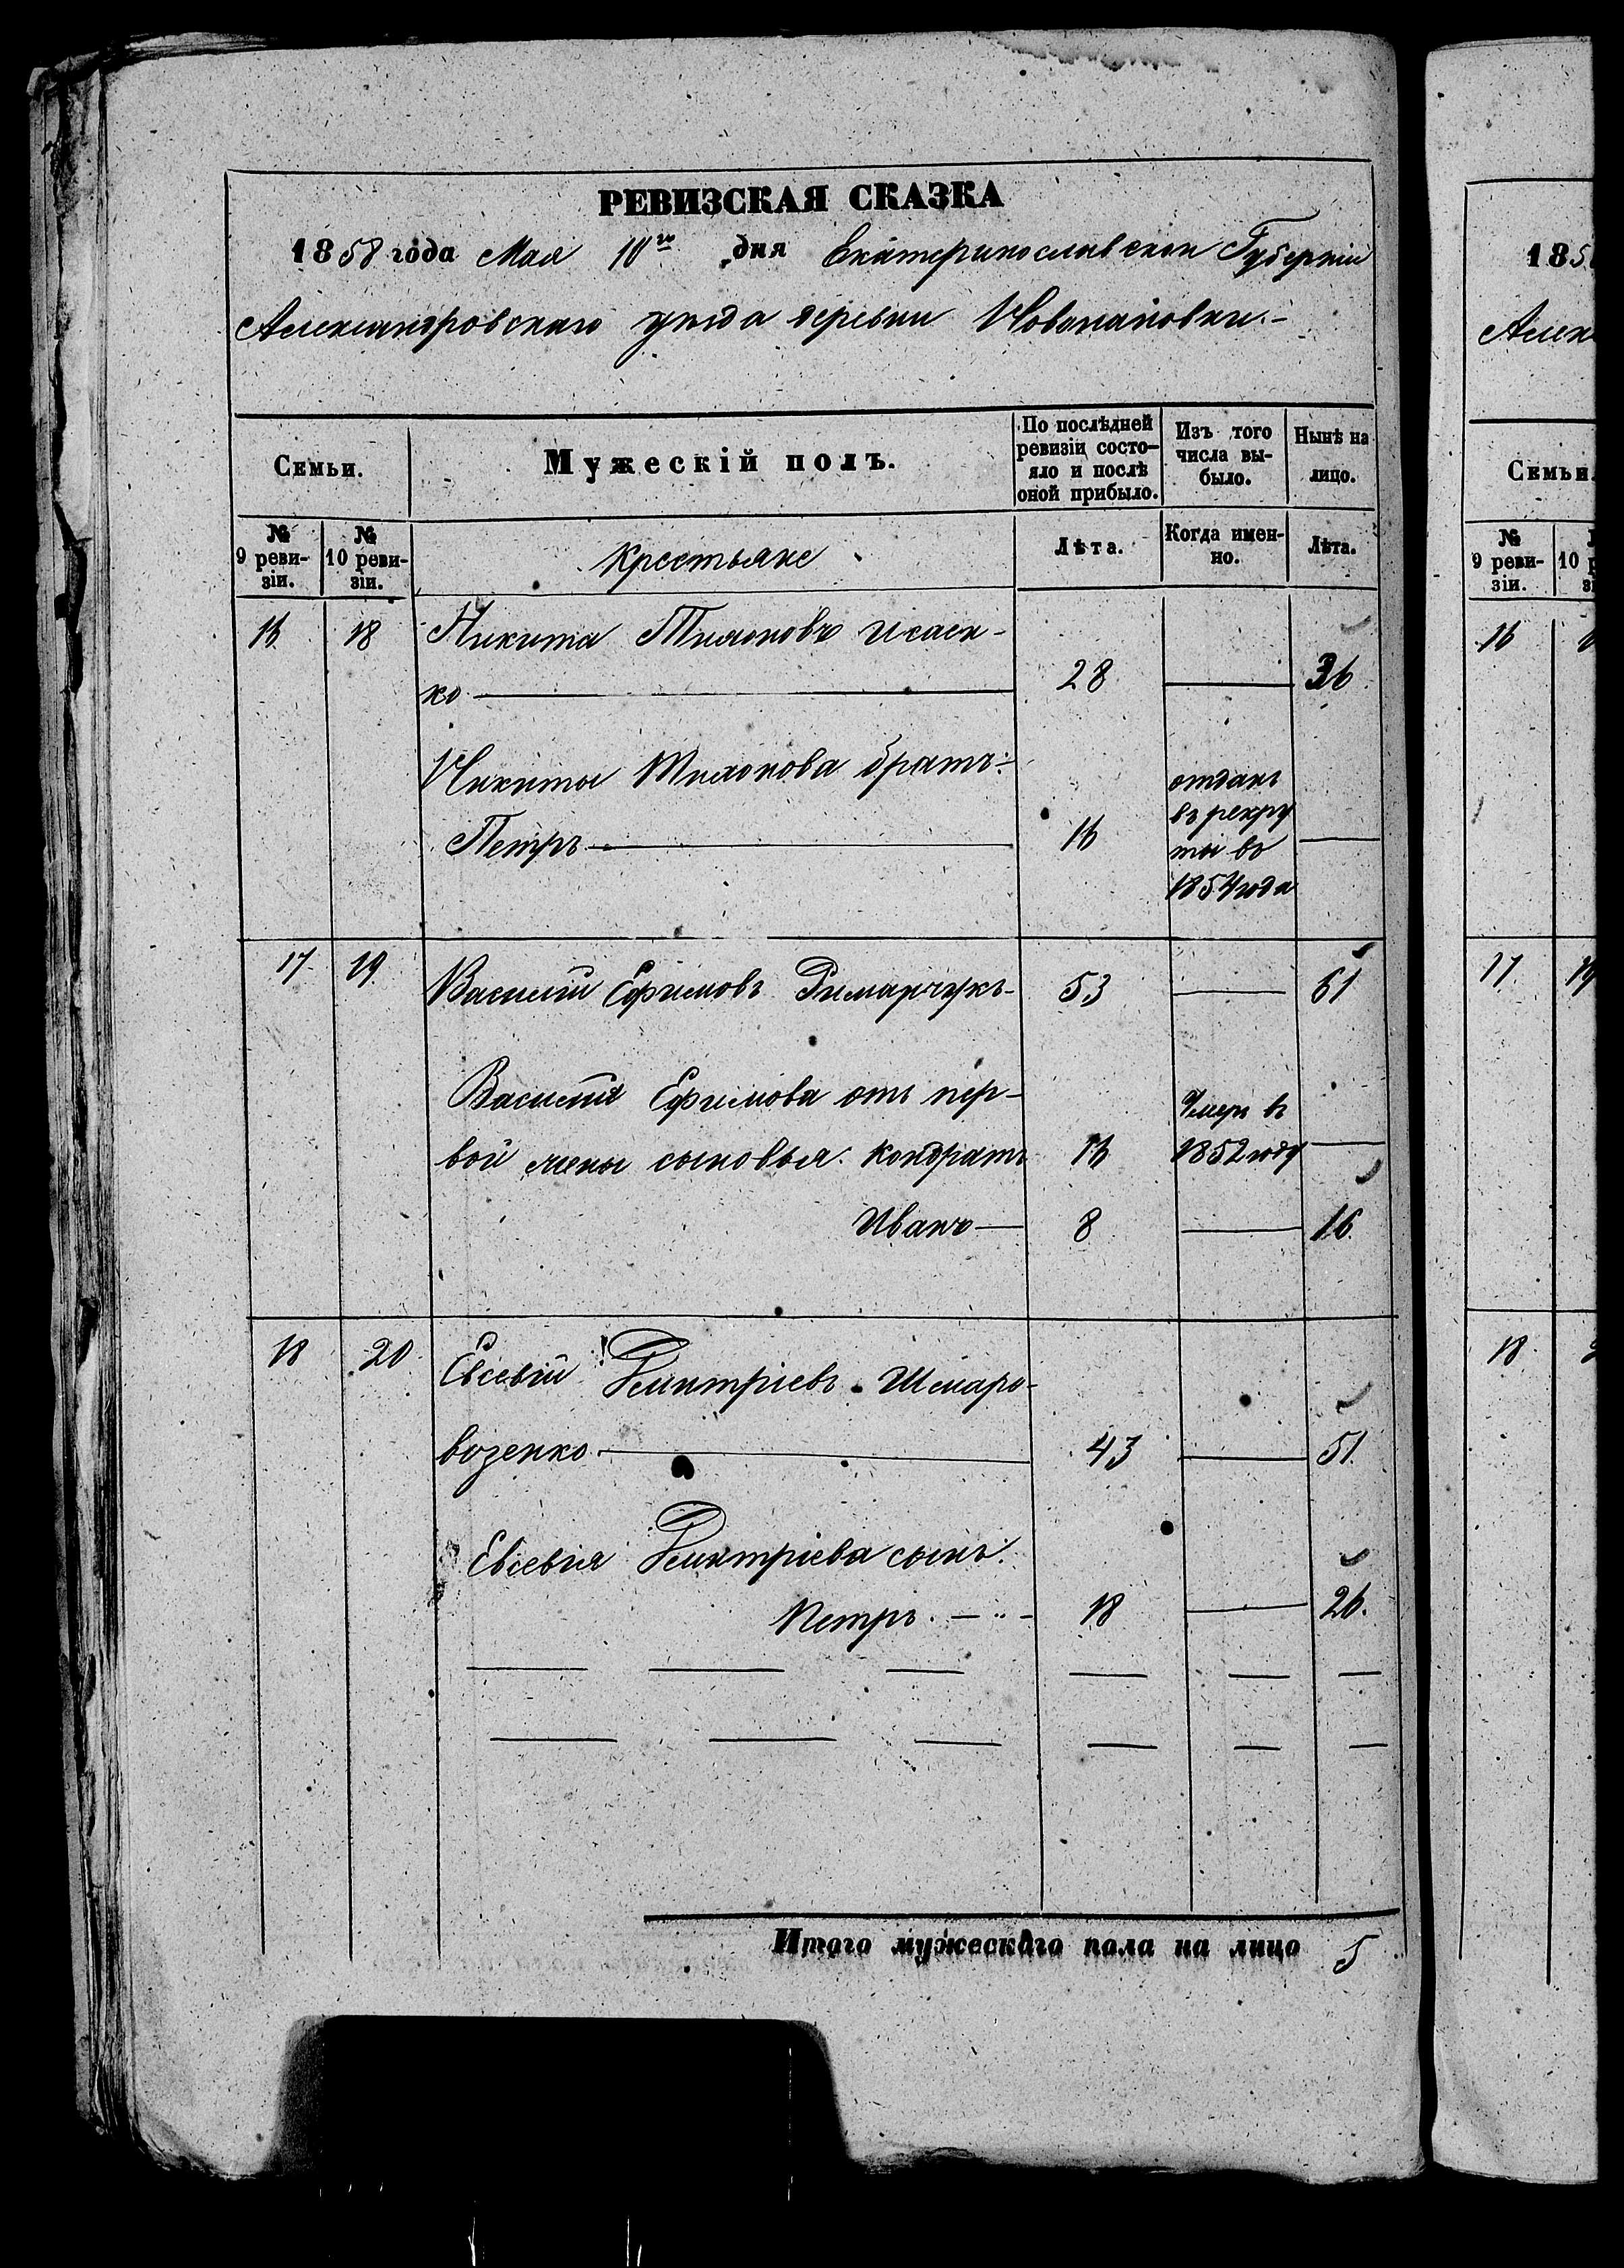 РЕВИЗСКАЯ СКАЗКА
1858 года Мая 10го дня Екатеринославской Губерніи
Александровскаго уезда деревни
Семьи.
Мужескій полъ.
По послѣдней ревизіи состо-
яло и послѣ оной прибыло.
Изъ того числа вы-
было.
Нынѣ на лицо.
№ 9 реви-
зіи.
№ 10 реви-
зіи.
Крестьяне
Лѣта.
Когда имен-
но.
Лѣта.
16 18 Никита Тихоновъ Исаен-
ко 28 36
Никиты Тихонова братъ:
Петръ 16 отданъ
въ рекру
ты въ
1854 года
17 19 Василий Ефимовъ Римарчукъ 53 61
Василия Ефимова отъ пер-
вой жены сыновья: Кондратъ 16 Умеръ въ
1852 году
Иванъ 8 16
18 20 Евсевій Дмитріевъ Шемаро-
возенко 43 51
Евсевія Дмитріева сынъ:
Петръ 18 26
Итого мужескаго пола на лицо 5
185
Алек
Семьи.
№ 9 реви-
зіи.
10
16
17 19
18